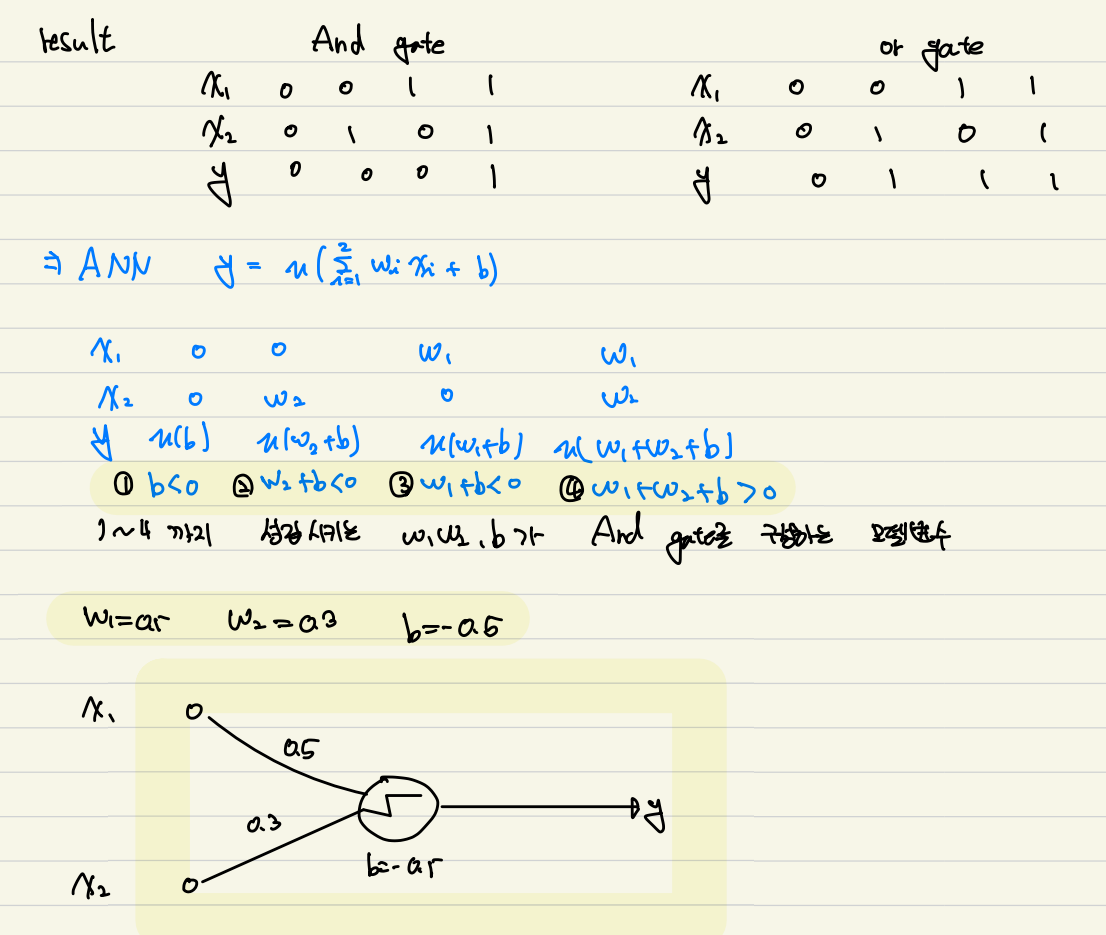 result And gate or gate
x₁ 0 0 1 1 x₁ 0 0 1 1
x₂ 0 1 0 1 x₂ 0 1 0 1
y 0 0 0 1 y 0 1 1 1
⇒ ANN y = u(∑²ᵢ₌₁ wᵢxᵢ + b)
x₁ 0 0 w₁ w₁
x₂ 0 w₂ 0 w₂
y u(b) u(w₂+b) u(w₁+b) u(w₁+w₂+b)
① b<0 ② w₂+b<0 ③ w₁+b<0 ④ w₁+w₂+b>0
1~4 까지 성립시키는 w₁w₂, b가 And gate를 구성하는 모델변수
w₁=0.5 w₂=0.3 b=-0.5
x₁
0.5
y
0.3
b=-0.5
x₂